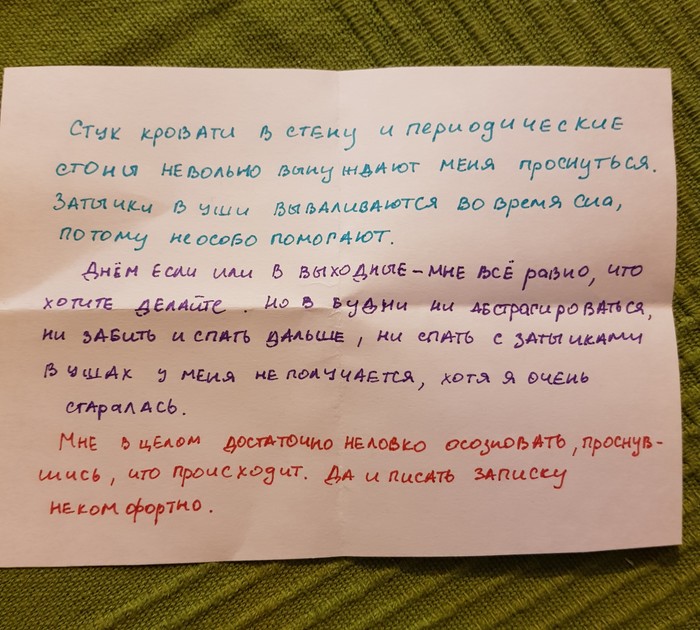 Стук кровати в стену и периодические
стоны невольно вынуждают меня проснуться.
Затычки в уши вываливаются во время сна,
потому не особо помогают.
Днём если или в выходные - мне всё равно, что
хотите делайте. Но в будни ни абстрагироваться,
ни забить и спать дальше, ни спать с затычками
в ушах у меня не получается, хотя я очень
старалась.
Мне в целом достаточно неловко осозновать, проснув-
шись, что происходит. Да и писать записку
некомфортно.